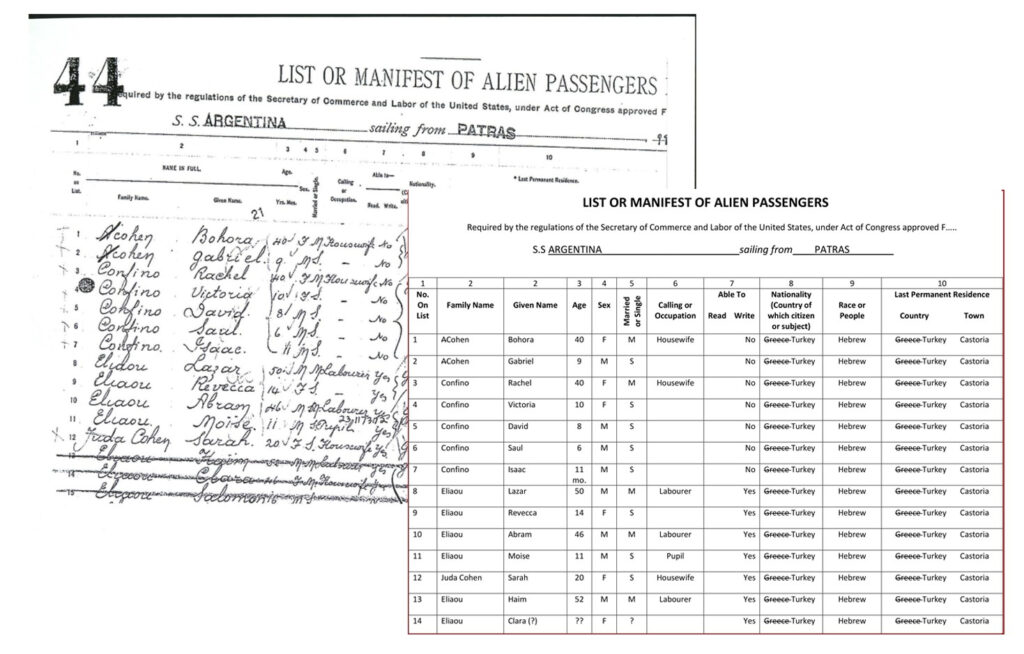 44
LIST OR MANIFEST OF ALIEN PASSENGERS
equired by the regulations of the Secretary of Commerce and Labor of the United States, under Act of Congress approved F
S. S. ARGENTINA sailing from PATRAS
1 2 3 4 5 6 7 8 9 10
No. on List. NAME IN FULL. Age. Sex. Married or Single. Calling or Occupation. Able to— Nationality. * Last Permanent Residence.
Family Name. Given Name. Yrs. Mos. Read. Write.
21
1 Acohen Bohora 40 F M Housewife No
2 Acohen Gabriel 9 M S. - No
3 Confino Rachel 40 F M Housewife No
4 Confino Victoria 10 F S. - No
5 Confino David 8 M S. - No
6 Confino Saul 6 M S. - No
7 Confino. Isaac 11 M S. - No
8 Eliaou Lazar 50 M M Labourer Yes
9 Eliaou Revecca 14 F S. Yes
10 Eliaou Abram 46 M M Labourer Yes
11 Eliaou. Moise 11 M S Pupil Yes
12 Juda Cohen Sarah. 20 F S. Housewife Yes
14 Eliaou
15 Eliaou
LIST OR MANIFEST OF ALIEN PASSENGERS
Required by the regulations of the Secretary of Commerce and Labor of the United States, under Act of Congress approved F…..
S.S ARGENTINA sailing from PATRAS
1 2 2 3 4 5 6 7 8 9 10
No. On List Family Name Given Name Age Sex Married or Single Calling or Occupation Able To Read Write Nationality (Country of which citizen or subject) Race or People Last Permanent Residence Country Town
1 ACohen Bohora 40 F M Housewife No Greece Turkey Hebrew Greece Turkey Castoria
2 ACohen Gabriel 9 M S No Greece Turkey Hebrew Greece Turkey Castoria
3 Confino Rachel 40 F M Housewife No Greece Turkey Hebrew Greece Turkey Castoria
4 Confino Victoria 10 F S No Greece Turkey Hebrew Greece Turkey Castoria
5 Confino David 8 M S No Greece Turkey Hebrew Greece Turkey Castoria
6 Confino Saul 6 M S No Greece Turkey Hebrew Greece Turkey Castoria
7 Confino Isaac 11 mo. M S No Greece Turkey Hebrew Greece Turkey Castoria
8 Eliaou Lazar 50 M M Labourer Yes Greece Turkey Hebrew Greece Turkey Castoria
9 Eliaou Revecca 14 F S Yes Greece Turkey Hebrew Greece Turkey Castoria
10 Eliaou Abram 46 M M Labourer Yes Greece Turkey Hebrew Greece Turkey Castoria
11 Eliaou Moise 11 M S Pupil Yes Greece Turkey Hebrew Greece Turkey Castoria
12 Juda Cohen Sarah 20 F S Housewife Yes Greece Turkey Hebrew Greece Turkey Castoria
13 Eliaou Haim 52 M M Labourer Yes Greece Turkey Hebrew Greece Turkey Castoria
14 Eliaou Clara (?) ?? F ? Yes Greece Turkey Hebrew Greece Turkey Castoria